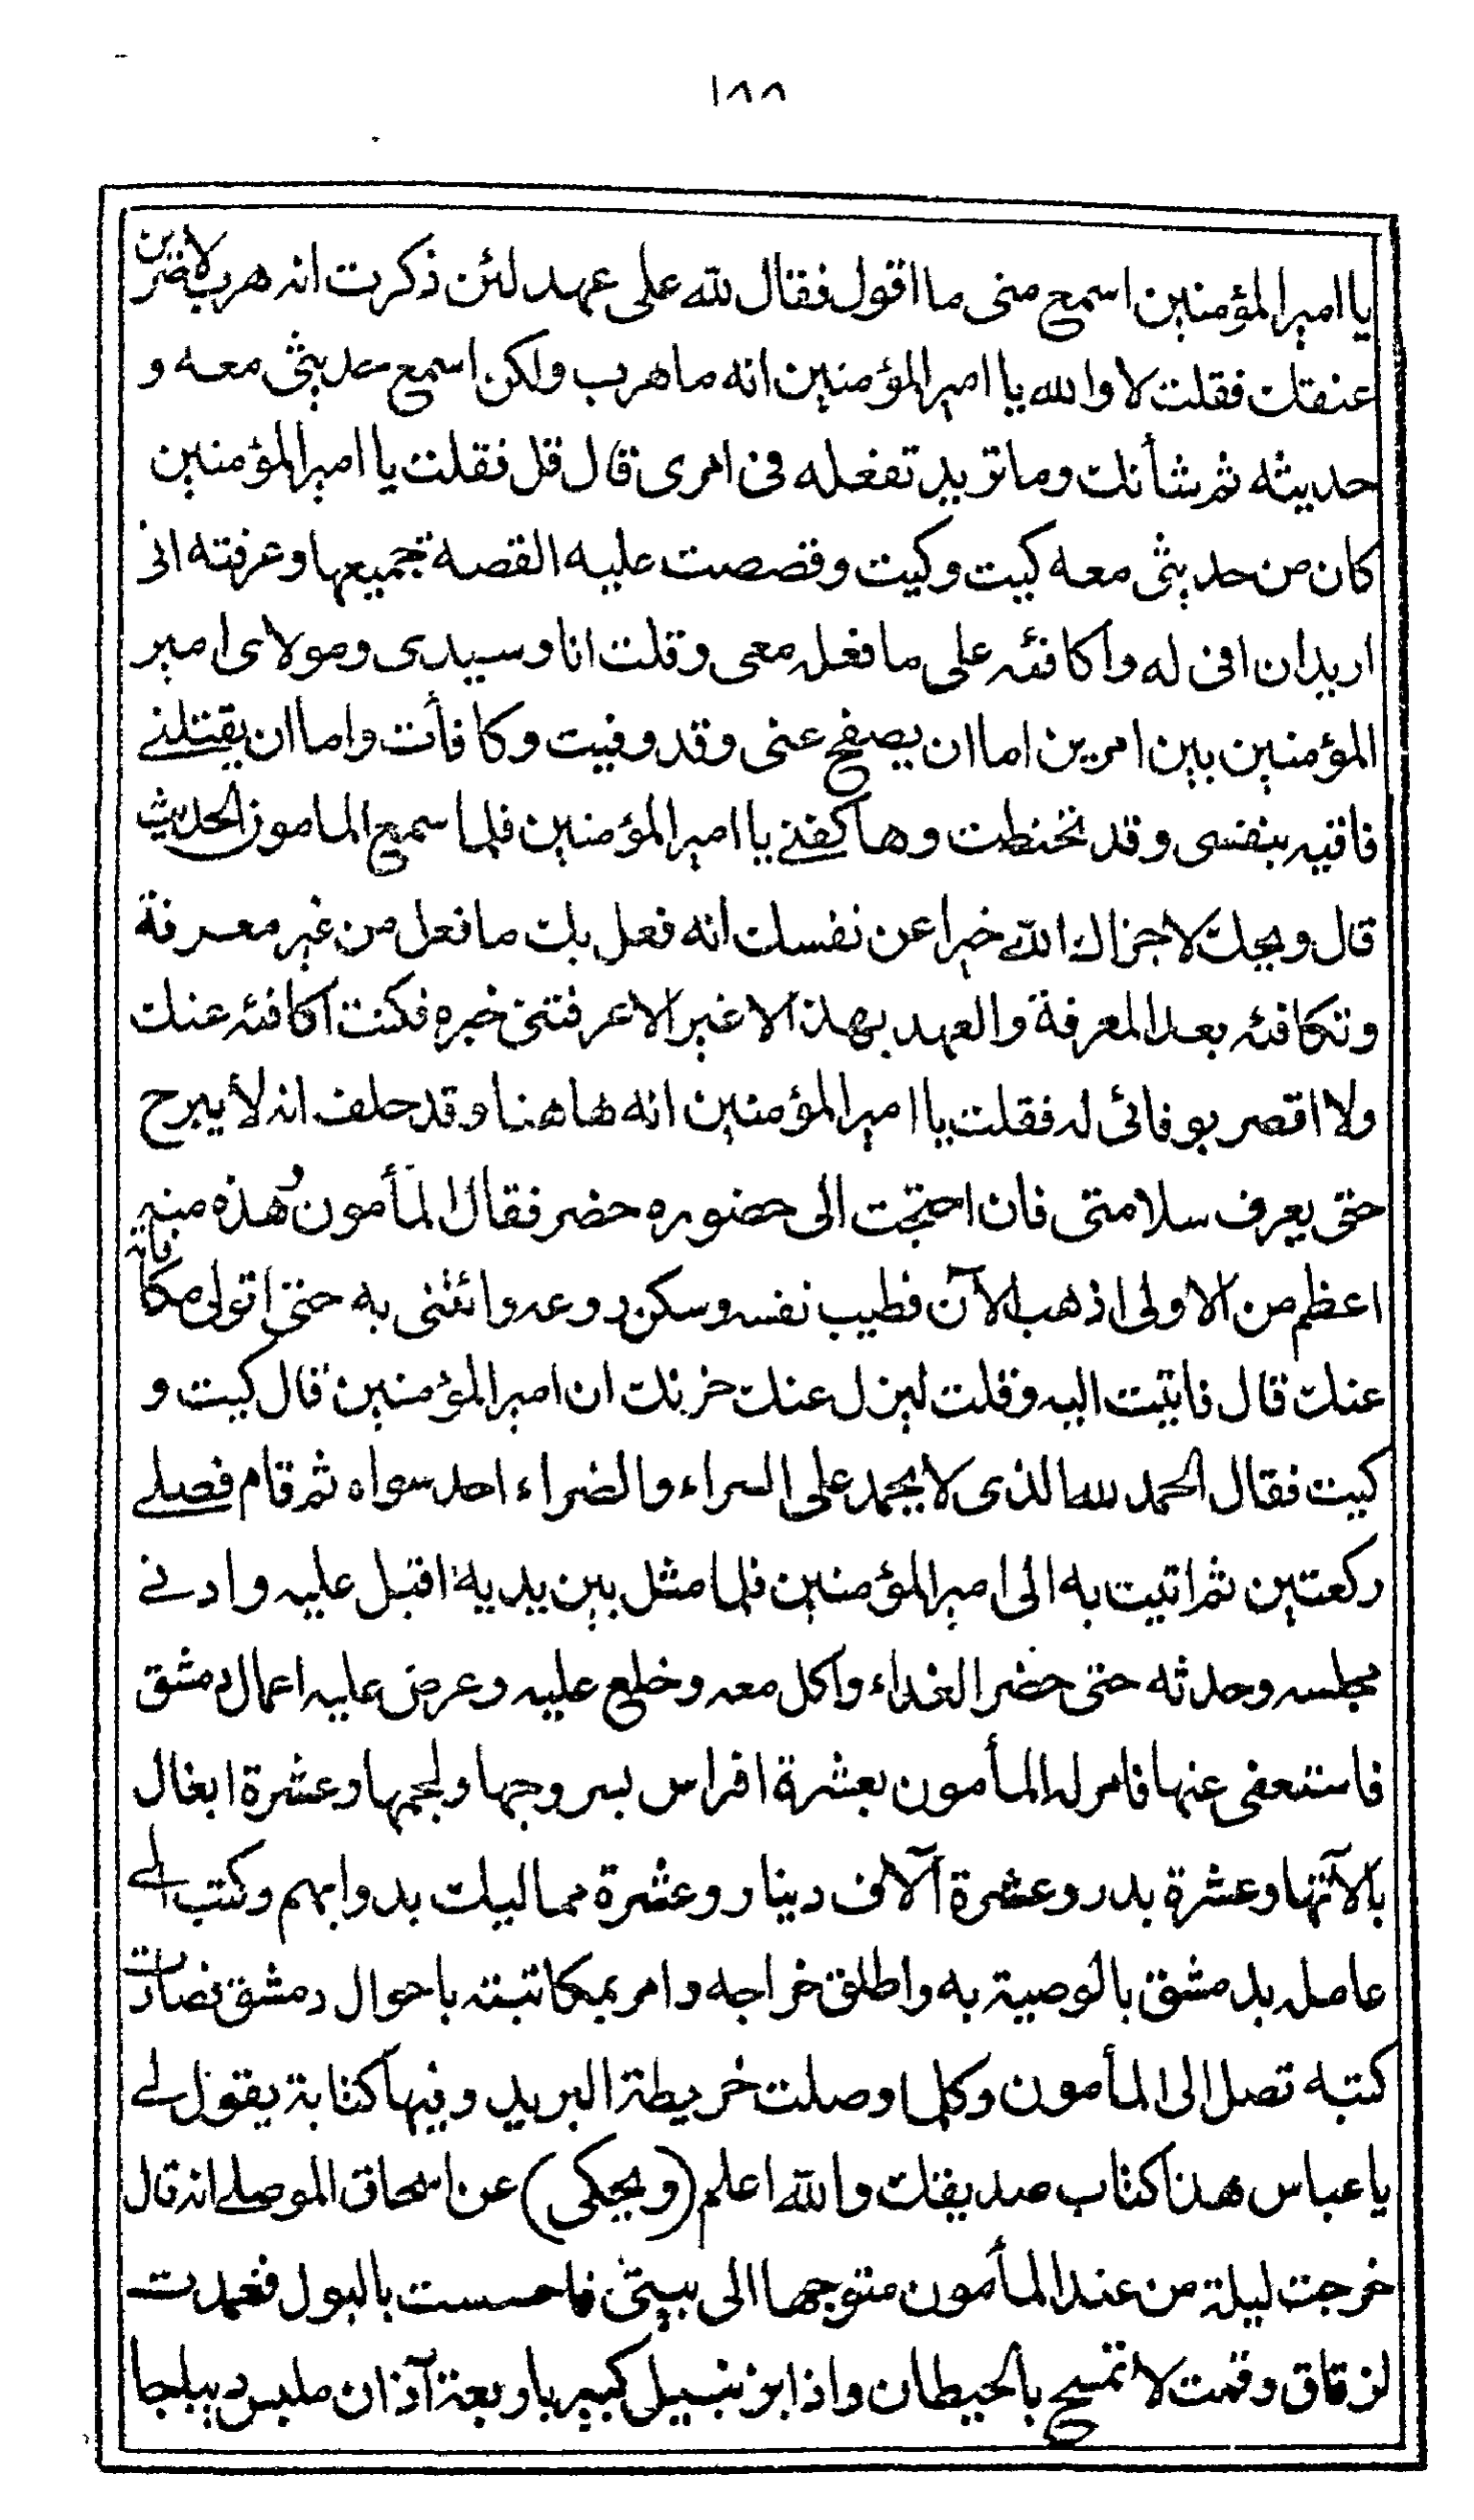 ١٨٨
يا امير المؤمنين اسمع مني ما اقول فقال لله علي عهد لئن ذكرت انه هرب لاضربن
عنقك فقلت لا والله يا امير المؤمنين انه ما هرب ولكن اسمع حديثي معه و
حديثه ثم شأنك وما تريد تفعله في امري قال قل فقلت يا امير المؤمنين
كان من حديثي معه كيت وكيت وقصصت عليه القصة جميعها وعرفته اني
اريد ان افي له واكافئه على ما فعله معي وقلت انا وسيدي ومولاى امير
المؤمنين بين امرين اما ان يصفح عني وقد وفيت وكافأت واما ان يقتلني
فاقيه بنفسي وقد تحنطت وها كفني يا امير المؤمنين فلما سمع المامون الحديث
قال ويحك لا جزاك الله خيرا عن نفسك انه فعل بك ما فعل من غير معرفة
وتكافئه بعد المعرفة والعهد بهذا لا غير الا عرفتني خبره فكنت اكافئه عنك
ولا اقصر بوفائي له فقلت يا امير المؤمنين انه هاهنا وقد حلف انه لا يبرح
حتى يعرف سلامتي فان احتجت الى حضوره حضر فقال المأمون وهذه منه
اعظم من الاولى اذهب الآن فطيب نفسه وسكن روعه وائتني به حتى اتولى مكافاته
عنك قال فاتيت اليه وقلت ليزل عنك حزنك ان امير المؤمنين قال كيت و
كيت فقال الحمد لله الذي لا يحمد على السراء والضراء احد سواه ثم قام فصلى
ركعتين ثم اتيت به الى امير المؤمنين فلما مثل بين يديه اقبل عليه وادنى
مجلسه وحدثه حتى حضر الغداء واكل معه وخلع عليه وعرض عليه اعمال دمشق
فاستعفى عنها فامر له المأمون بعشرة افراس بسروجها ولجمها وعشرة ابغال
بالآتها وعشرة بدر وعشرة آلاف دينار وعشرة مماليك بدوابهم وكتب الى
عامله بدمشق بالوصية به واطلق خراجه وامر بمكاتبته باحوال دمشق فصارت
كتبه تصل الى المأمون وكلما وصلت خريطة البريد وفيها كتابة يقول لي
يا عباس هذا كتاب صديقك والله اعلم (ويحكى) عن اسحاق الموصلي انه قال
خرجت ليلة من عند المأمون متوجها الى بيتي فاحسست بالبول فعمدت
لزقاق وقمت لاتمسح بالحيطان واذا بزنبيل كبير باربعة آذان ملبس ديباجا